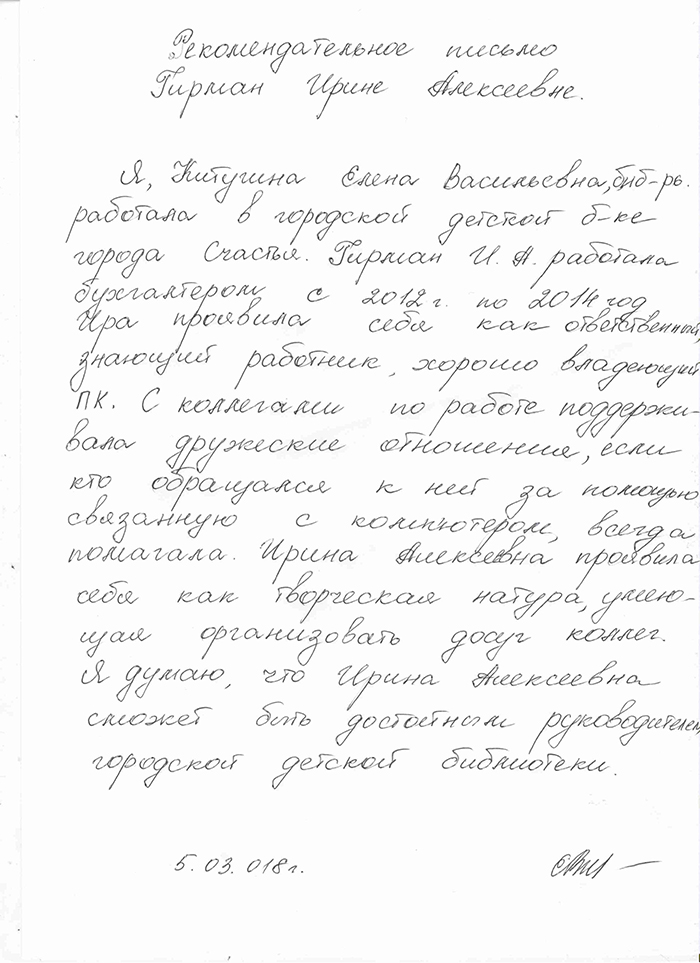 Рекомендательное письмо
Гирман Ирине Алексеевне.
Я, Китугина Елена Васильевна, биб-рь.
работала в городской детской б-ке
города Счастья. Гирман И. А. работала
бухгалтером с 2012 г. по 2014 год
Ира проявила себя как ответственный,
знающий работник, хорошо владеющий
ПК. С коллегами по работе поддержи-
вала дружеские отношения, если
кто обращался к ней за помощью
связанную с компютером, всегда
помагала. Ирина Алексеевна проявила
себя как творческая натура, умею-
щая организовать досуг коллег.
Я думаю, что Ирина Алексеевна
сможет быть достойным руководителем
городской детской библиотеки.
5.03.018г.